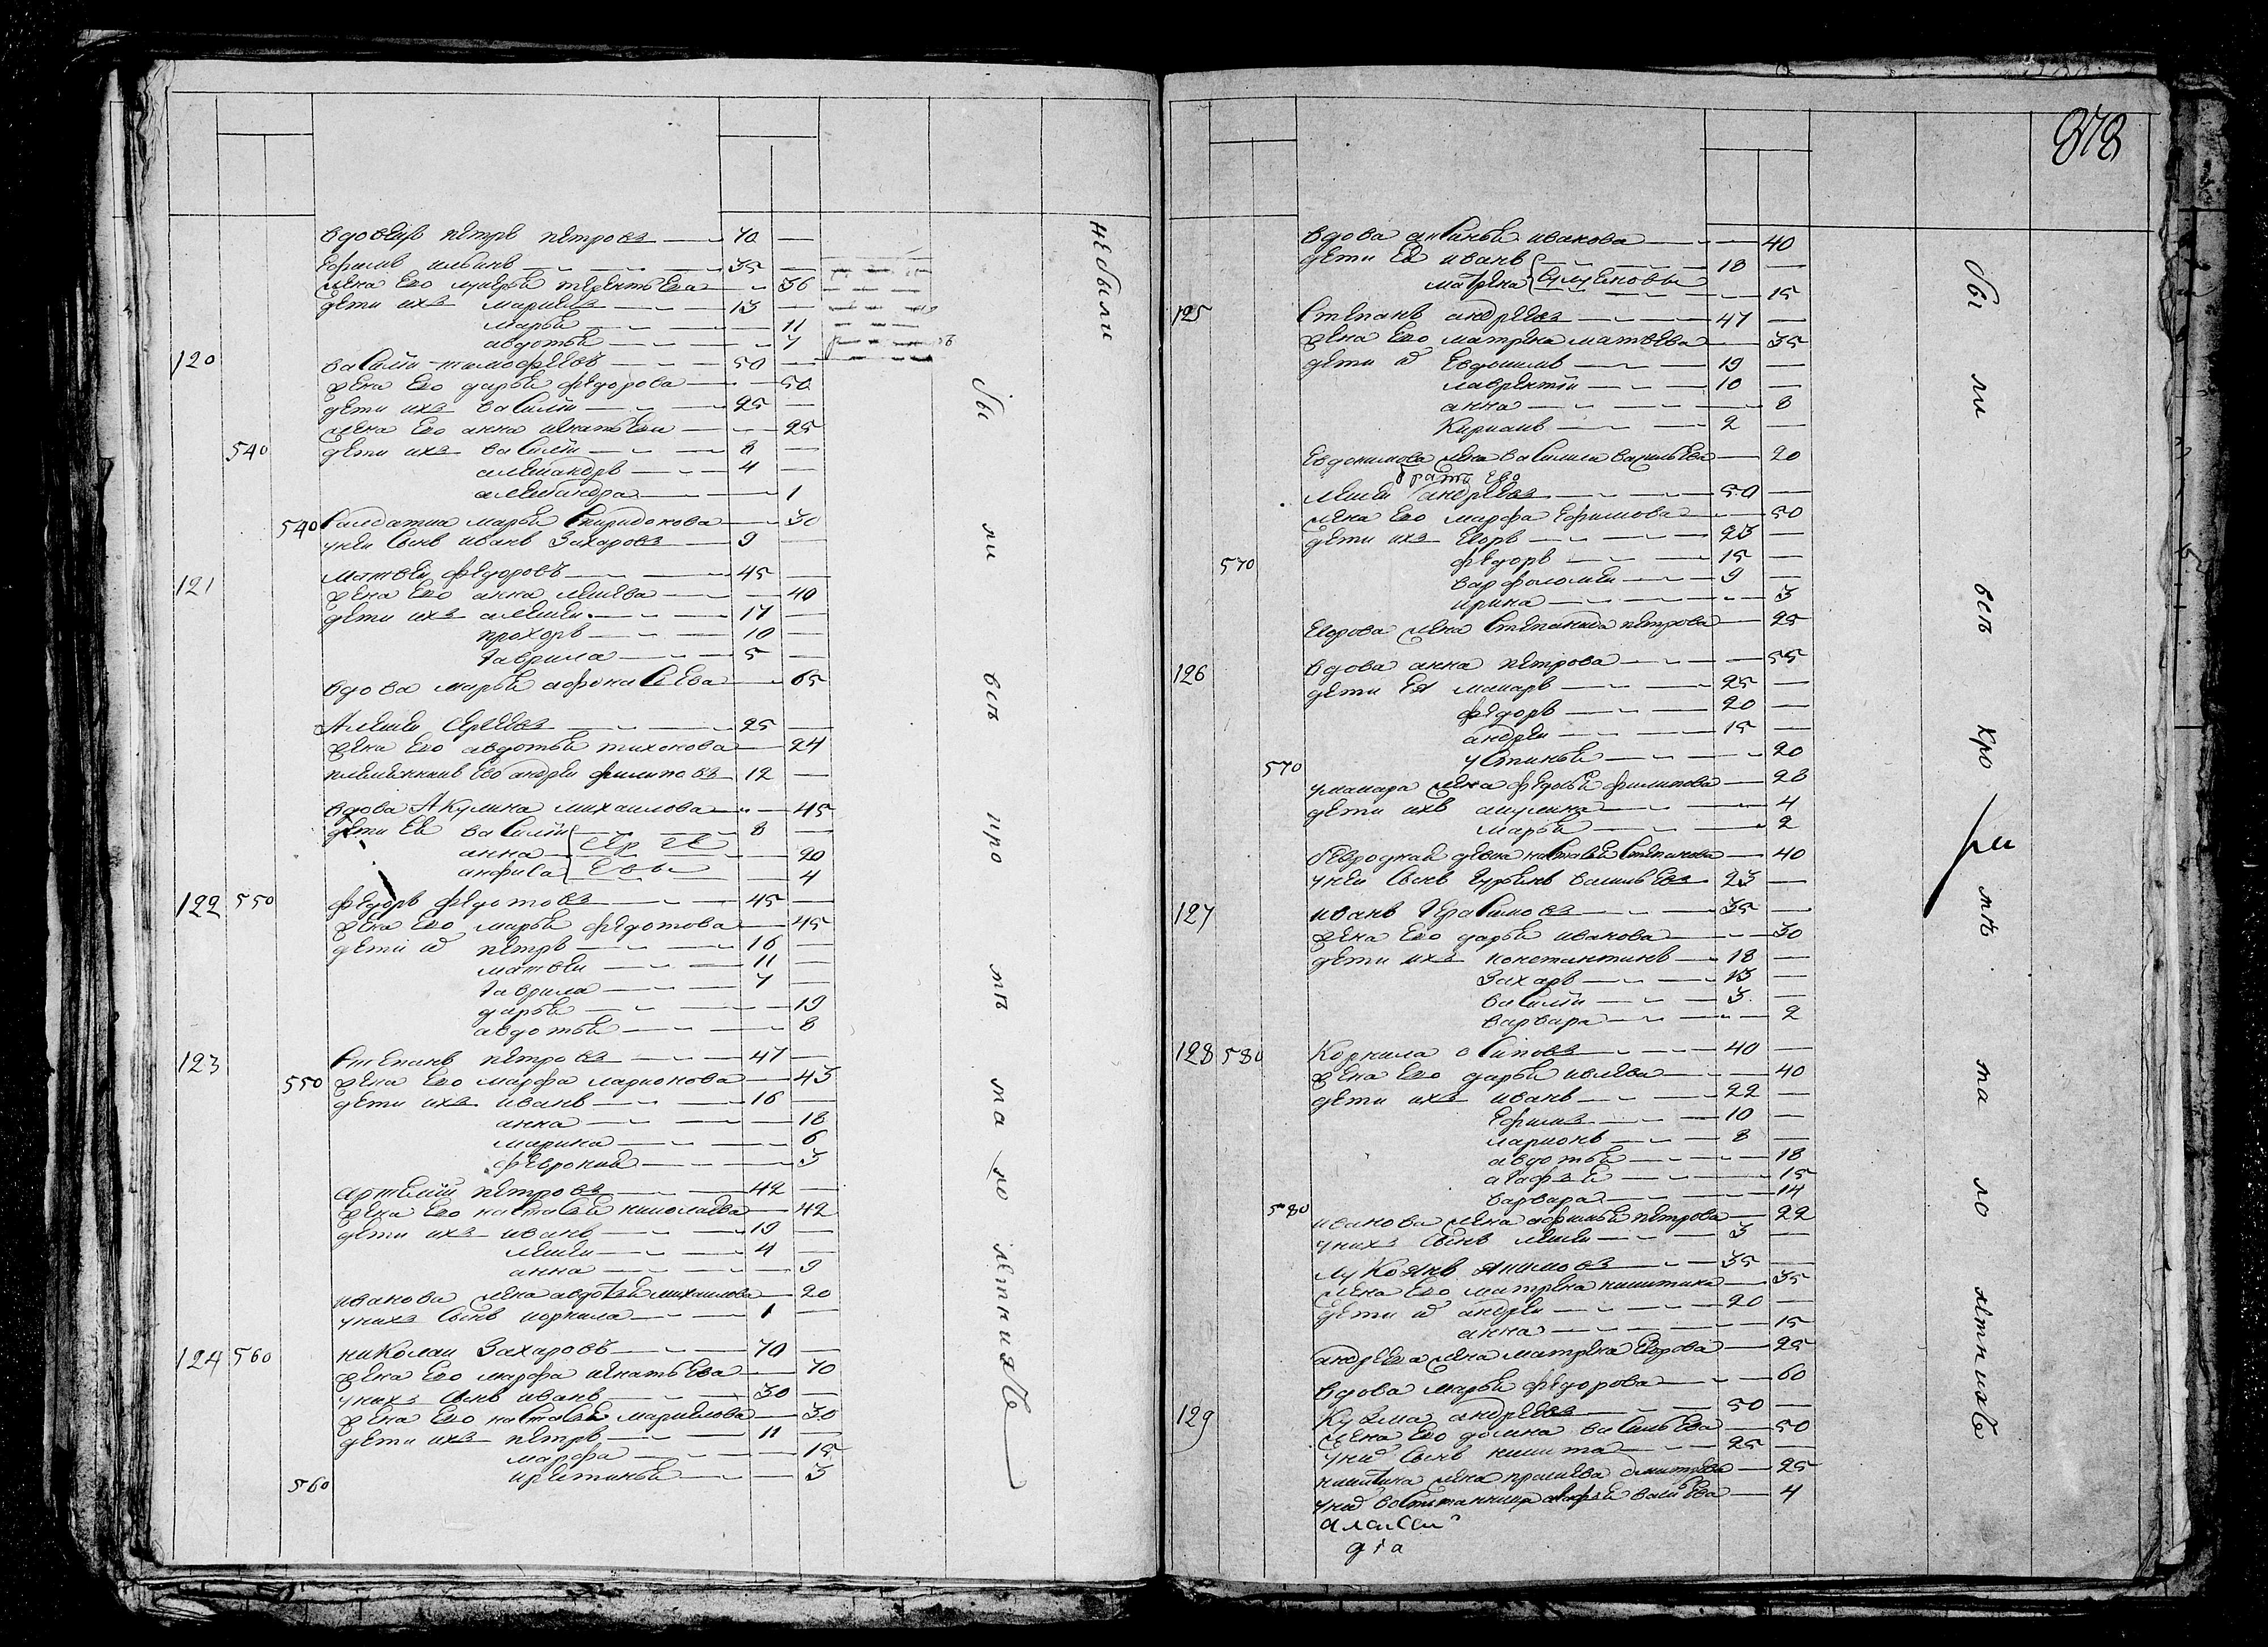 вдовецъ петръ петровъ 70
Ефимъ ильинъ 35
жена Его лукерья терентьева 36
дети ихъ 13
марья 11
авдотья 7
120 василий тимофеевъ 50
жена Его дарья федорова 50
дети ихъ василий 25
жена Его анна игнатьева 25
540 дети ихъ василий 8
александръ 4
александра 1
540 салдатка марья спиридонова 30
у неи сынъ иванъ Захаровъ 9
121 матвеи федоровъ 45
жена Его анна 40
дети ихъ алексеи 17
прохоръ 10
гаврила 5
вдова марья афонасьева 65
Алексеи Сергеевъ 25
жена Его авдотья тихонова 24
племянникъ Его андреи филиповъ 12
вдова Акулина михаилова 45
дети Ея василий 8
анна Сергеевы 20
анфиса 4
122 550 федоръ федотовъ 45
жена Его марья федотова 45
дети их петръ 16
матвеи 11
гаврила 7
дарья 19
авдотья 8
123 Степанъ петровъ 47
550 жена Его марфа ларионова 43
дети ихъ иванъ 16
анна 18
марина 6
феврония 3
артемий петровъ 42
жена Его настасья николаева 42
дети ихъ иванъ 19
4
анна 9
иванова жена авдотья михаилова 20
у нихъ сынъ корнила 1
124 560 николаи Захаровъ 70
жена Его марфа игнатьева 70
у нихъ сынъ иванъ 30
жена Его настасья 30
дети ихъ петръ 11
марфа 15
560 христинья 3
не были
бы ли всѣ кро мѣ ма ло лѣтнихъ
878
вдова аксинья иванова 40
дети Ея иванъ 18
матрена 15
125 Степанъ андреевъ 47
жена Его матрена матвева 35
дети их Евдокимъ 19
лаврентий 10
анна 8
Кирилъ 2
Евдокимова жена василиса васильева 20
братъ Его
андреевъ 50
жена Его марфа Ефимова 50
дети ихъ Егоръ 23
570 федоръ 15
варфоломеи 9
ирина 3
Егорова жена степанида петрова 25
126 вдова анна петрова 55
дети Ея макаръ 25
федоръ 20
андреи 15
устинья 20
570 у макара жена федосья филипова 28
дети ихъ акулина 4
марья 2
безродная девка настасья степанова 40
у неи сынъ васильевъ 23
127 иванъ герасимовъ 35
жена Его дарья иванова 30
дети ихъ константинъ 18
Захаръ 13
василий 3
варвара 2
128 580 Корнила осиповъ 40
жена Его дарья 40
дети ихъ иванъ 22
Ефимъ 10
ларионъ 8
авдотья 18
агафья 15
варвара 14
580 иванова жена афимья петрова 22
у нихъ сынъ 3
лукоянъ якимовъ 35
жена Его матрена никитина 35
дети их андреи 20
анна 15
андреева жена матрена Егорова 25
вдова марья федорова 60
129 Кузма андреевъ 50
жена Его домна васильева 50
у них сынъ никита 25
никитина жена дмитрева 25
у них воспитанница 4
алексеи
бы ли всѣ кро мѣ ма ло лѣтнихъ